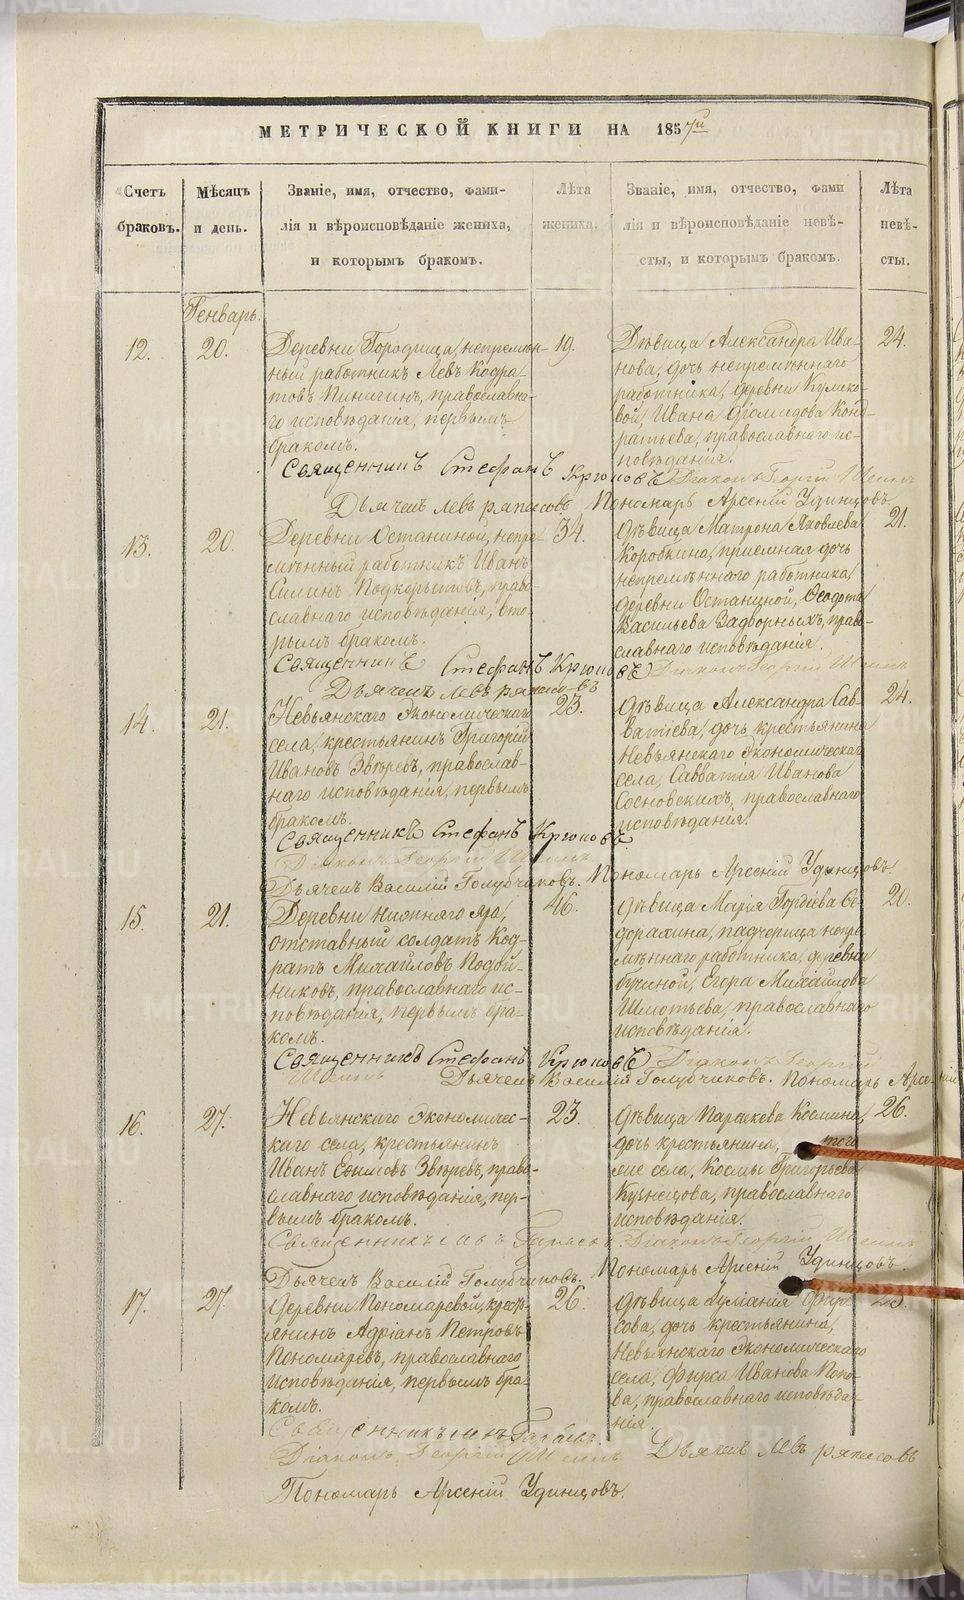 МЕТРИЧЕСКОЙ КНИГИ НА 1857й
Счетъ браковъ.
Мѣсяцъ и день.
Званіе, имя, отчество, фами-
лія и вѣроисповѣданіе жениха,
и которымъ бракомъ.
Лѣта жениха.
Званіе, имя, отчество, фами
лія и вѣроисповѣданіе невѣ-
сты, и которымъ бракомъ.
Лѣта невѣ-
сты.
Генварь.
12. 20.
Деревни Городища, непремѣн-
ный работникъ Левъ Кодра-
товъ Пинигинъ, православна-
го исповѣданія, первымъ
бракомъ.
19.
Дѣвица Александра Ива-
нова, дочь непремѣннаго
работника, деревни Кулико-
вой, Ивана Діомидова Конд-
ратьева, православнаго ис-
повѣданія.
24.
Священникъ Стефанъ Крюковъ Діаконъ Георгій
Дьячекъ Левъ Пономарь Арсеній Удинцовъ
13. 20.
Деревни Останиной, непре-
мѣнный работникъ Иванъ
Силинъ Подкорытовъ, право-
славнаго исповѣданія, вто-
рымъ бракомъ.
34.
Дѣвица Матрона Яковлева
Коробкина, приемная дочь
непремѣннаго работника
деревни Останиной, Ѳеодота
Васильева Задворныхъ, право-
славнаго исповѣданія.
21.
Священникъ Стефанъ Крюковъ Діаконъ Георгій
Дьячекъ Левъ
14. 21.
Невьянскаго экономическаго
села, крестьянинъ Григорій
Ивановъ Звѣревъ, православ-
наго исповѣданія, первымъ
бракомъ.
23.
Дѣвица Александра Сав-
ватіева, дочь крестьянина
Невьянскаго экономическаго
села, Савватія Иванова
Сосновскихъ, православнаго
исповѣданія.
24.
Священникъ Стефанъ Крюковъ
Діаконъ Георгій
Дьячекъ Василій Голубчиковъ. Пономарь Арсеній Удинцовъ.
15. 21.
Деревни нижняго яра,
отставный солдатъ Код-
ратъ Михайловъ Подой-
никовъ, православнаго ис-
повѣданія, первымъ бра-
комъ.
46.
Дѣвица Марія Гордіева Се-
дорахина, падчерица непре-
мѣннаго работника, деревни
Бучиной, Егора Михайлова
Шмотьева, православнаго
исповѣданія.
20.
Священникъ Стефанъ Крюковъ Діаконъ Георгій
Дьячекъ Василій Голубчиковъ. Пономарь Арсеній
16. 27.
Невьянскаго экономичес-
каго села, крестьянинъ
Иванъ Звѣревъ, право-
славнаго исповѣданія, пер-
вымъ бракомъ.
23.
Дѣвица Параскева Космина,
дочь крестьянина, того
же села, Космы Григорьева
Кузнецова, православнаго
исповѣданія.
26.
Священникъ Діаконъ Георгій
Дьячекъ Василій Голубчиковъ. Пономарь Арсеній Удинцовъ.
17. 27.
Деревни Пономаревой, кресть-
янинъ Адріанъ Петровъ
Пономаревъ, православнаго
исповѣданія, первымъ бра-
комъ.
26.
Дѣвица Іуліания Фир-
сова, дочь крестьянина,
Невьянскаго экономическаго
села, Фирса Иванова Попо-
ва, православнаго исповѣда-
нія.
23.
Священникъ
Діаконъ Георгій Дьячекъ Левъ
Пономарь Арсеній Удинцовъ.
METRIKI.GASO-URAL.RU